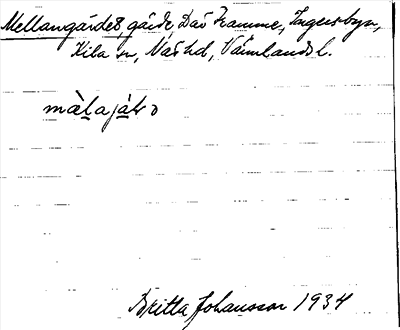 Mellangärdet, gärde, Där Framme, Ingersbyn,
Kila sn, Näs hd, Värmlands l.
Britta Johansson 1934